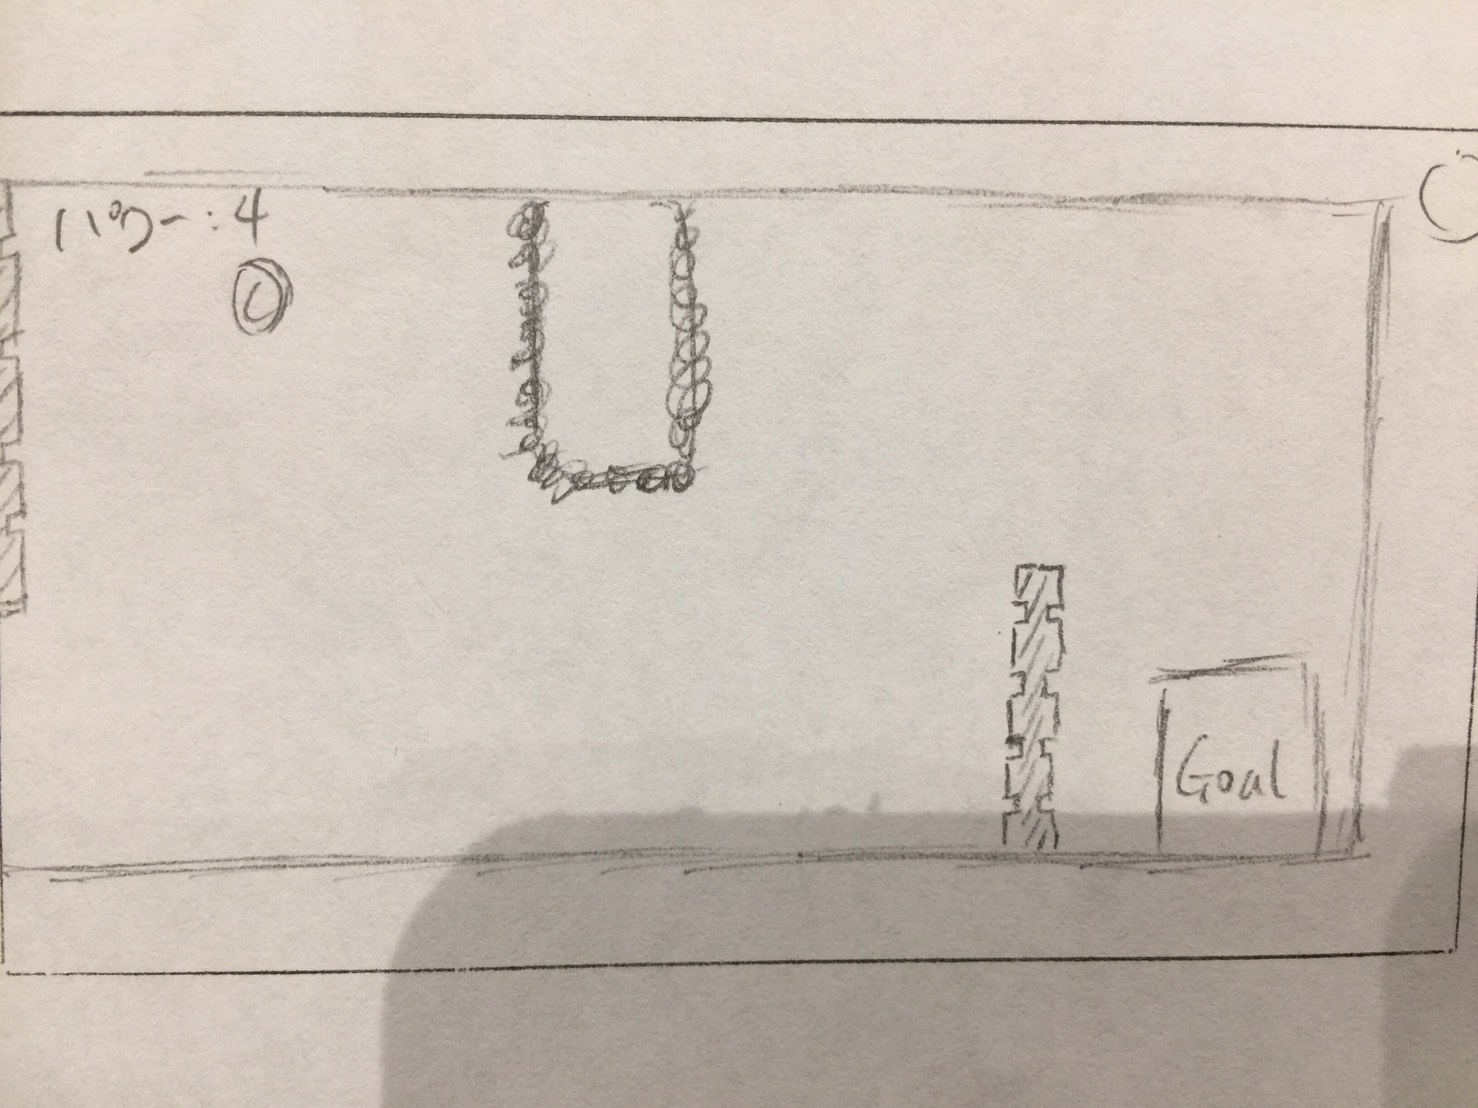 パワー:4
Goal